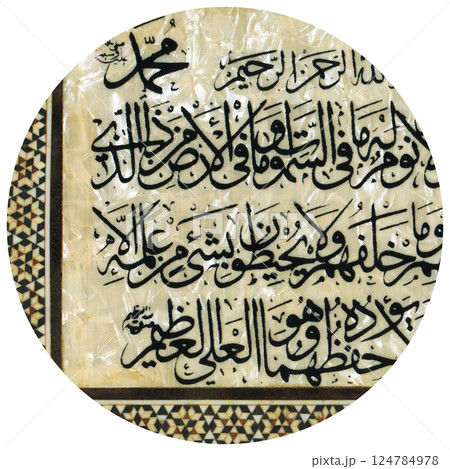 لله الرحمن الرحيم محمد
لا نوم له ما فى السموات وما فى الأرض من ذا الذى
وما خلفهم ولا يحيطون بشئ من علمه إلا
يؤده حفظهما وهو العلي العظيم
124784978